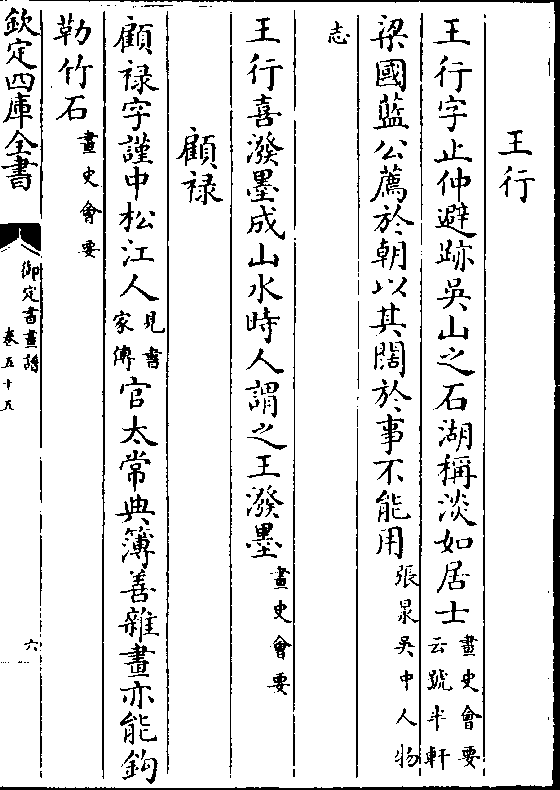 王行
王行字止仲避跡吳山之石湖稱淡如居士畫史會要云號半軒
梁國藍公薦於朝以其闊於事不能用張㫤吳中人物
志
王行喜潑墨成山水時人謂之王潑墨畫史會要
顧禄
顧禄字謹中松江人見書家傳官太常典簿善雜畫亦能鈎
勒竹石畫史會要
欽定四庫全書
御定書畫譜
卷五十五
六